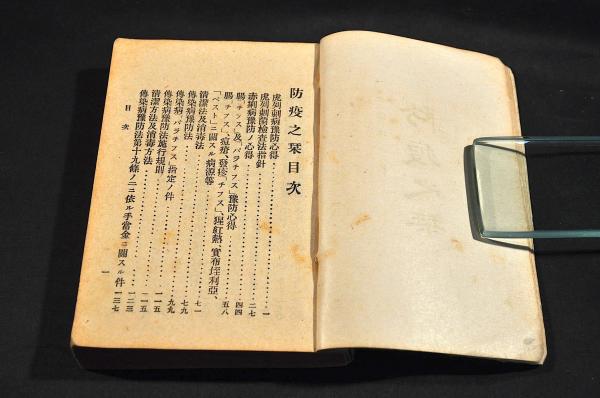 防疫之栞目次
虎列剌病豫防心得……………一
虎列剌菌檢査法指針……………二七
赤痢病豫防ノ心得……………四四
腸「チフス」及「パラチフス」豫防心得……………五八
腸「チフス」、痘瘡、發疹「チフス」、猩紅熱、實布垤利亞、
「ペスト」ニ關スル病源等……………七一
清潔法及消毒法……………七九
傳染病豫防法……………九九
傳染病「パラチフス」指定ノ件……………一一五
傳染病豫防法施行規則……………一一五
清潔方法及消毒方法……………一二三
傳染病豫防法第十九條ノ二ニ依ル手當金ニ關スル件 一三七
目次
一